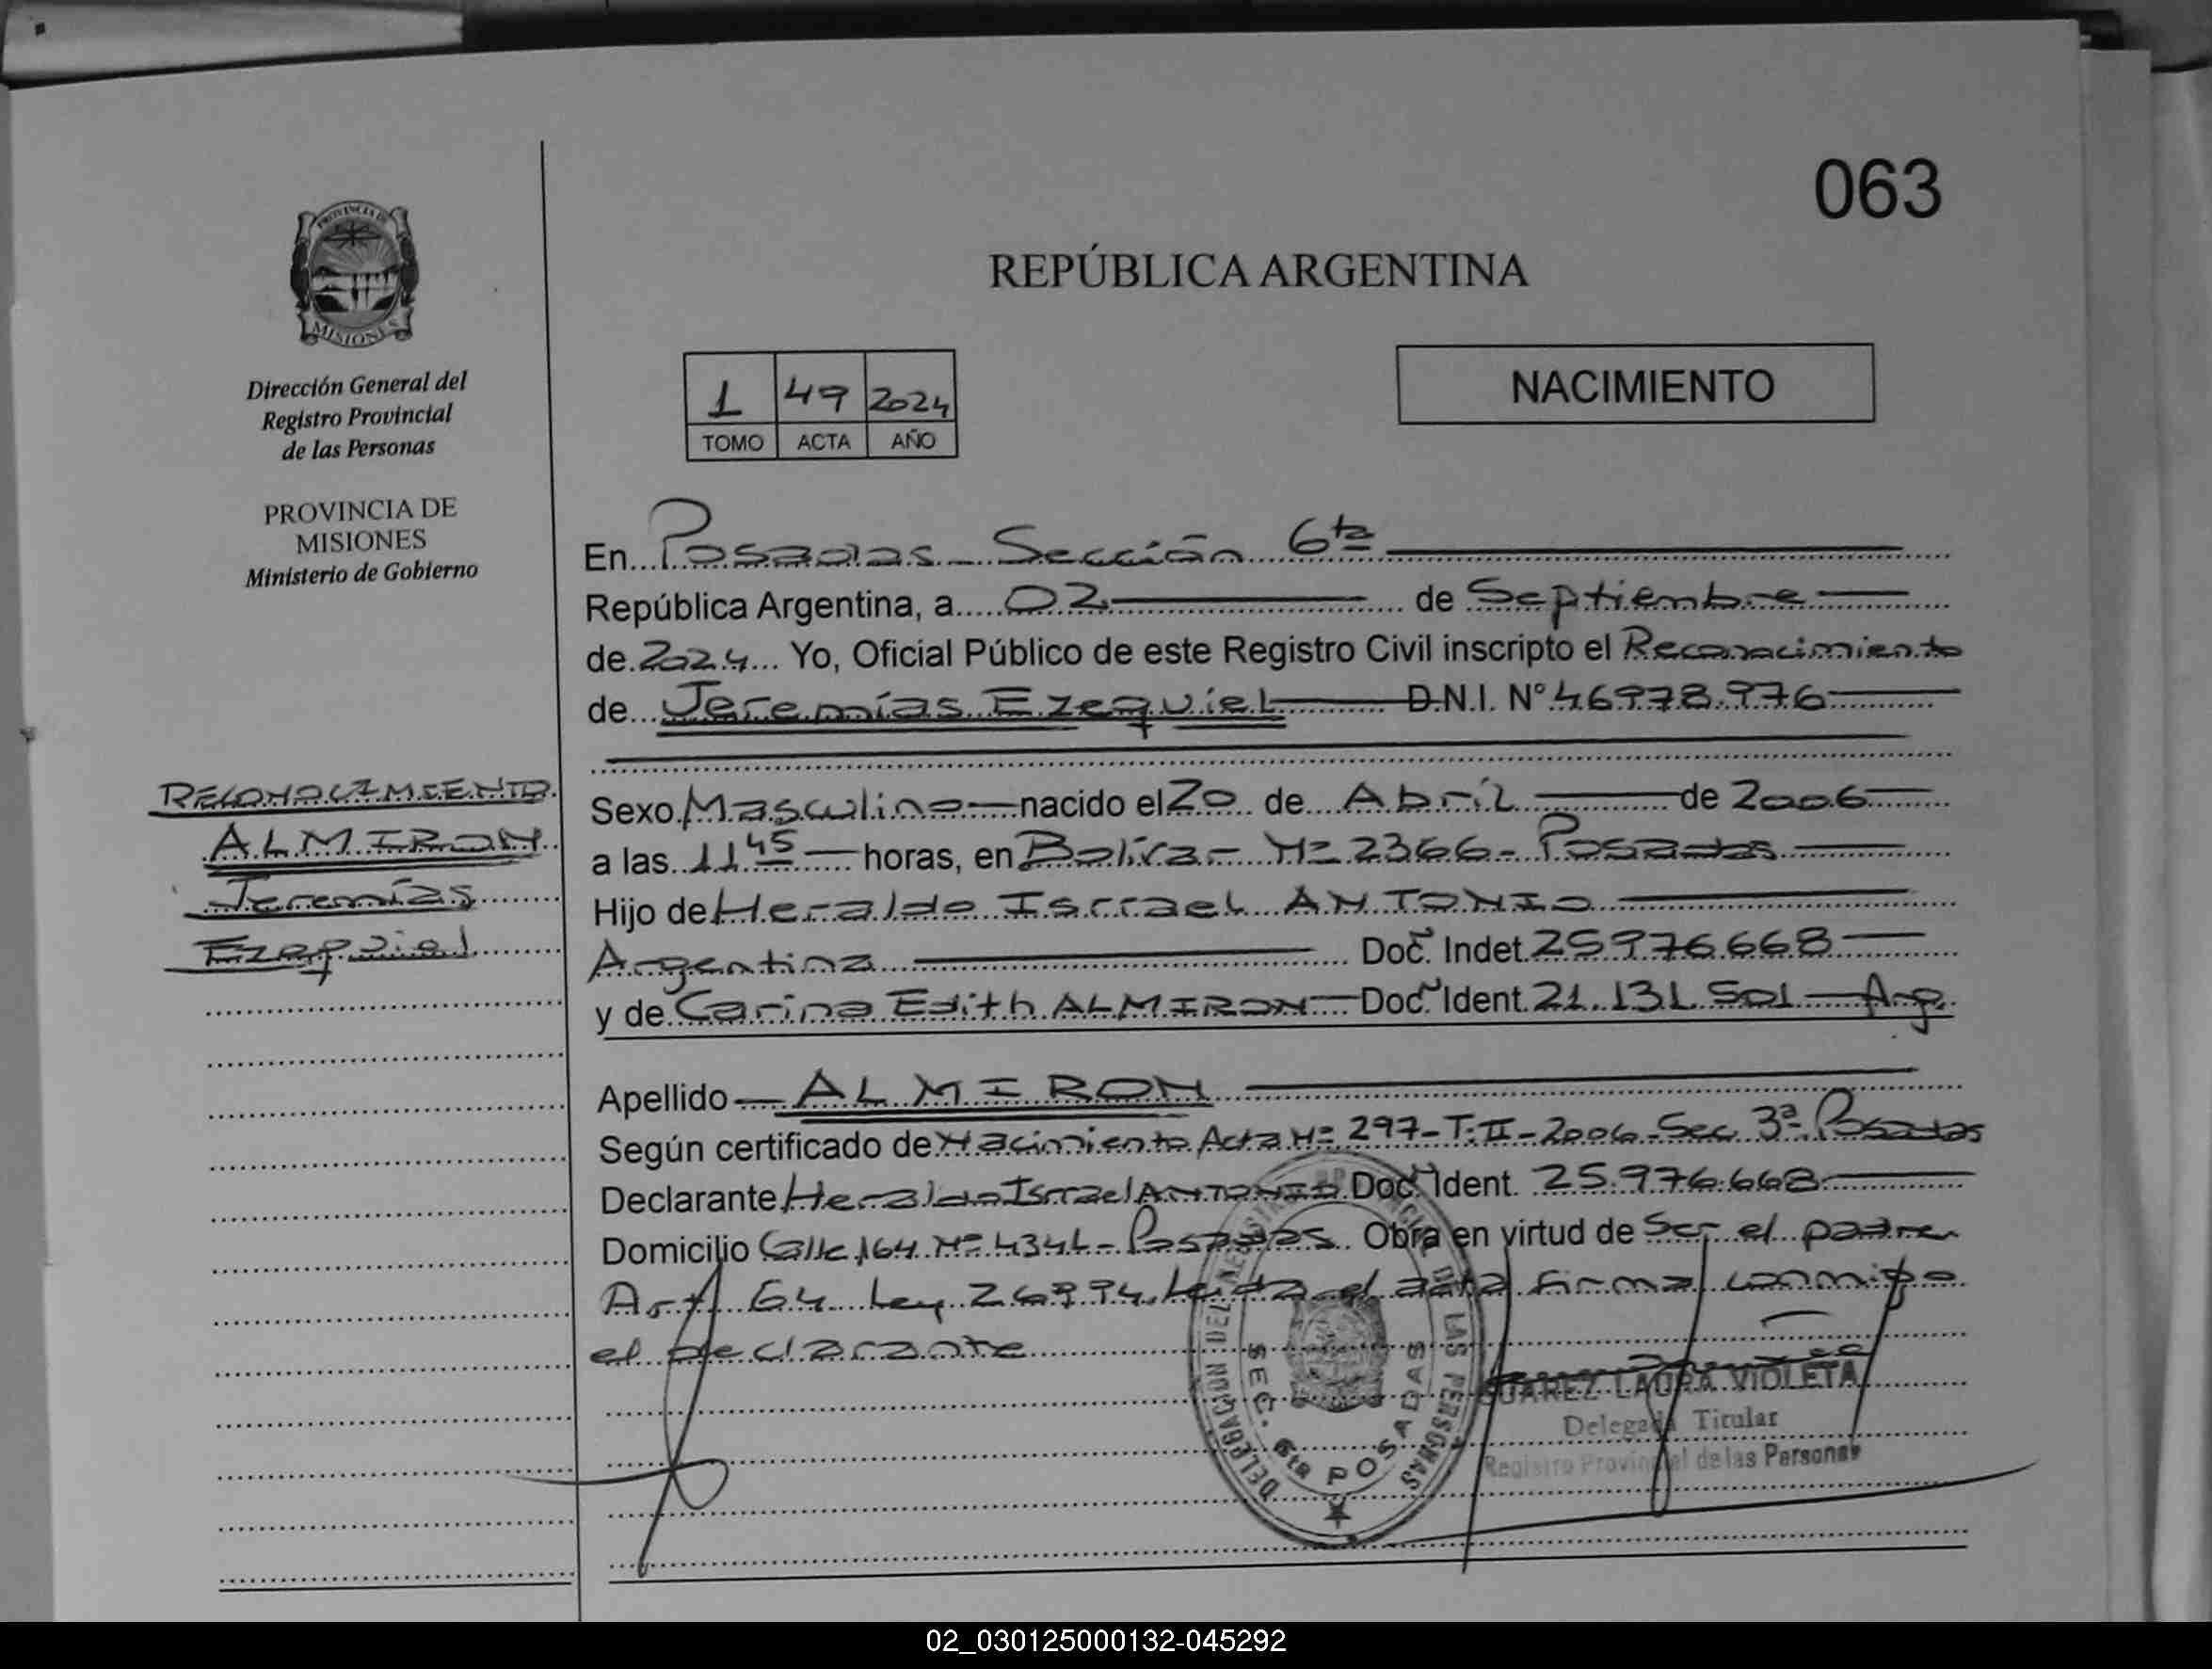 063
PROVINCIA DE
MISIONES
Dirección General del
Registro Provincial
de las Personas
PROVINCIA DE
MISIONES
Ministerio de Gobierno
RECONOCIMIENTO
ALMIRON
Jeremías
Ezequiel
REPÚBLICA ARGENTINA
1 49 2024
TOMO ACTA AÑO
NACIMIENTO
En Posadas - Sección 6ta
República Argentina, a 02 de Septiembre
de 2024 Yo, Oficial Público de este Registro Civil inscripto el Reconocimiento
de Jeremías Ezequiel D.N.I. N° 46978.976
Sexo Masculino nacido el 20 de Abril de 2006
a las 11 45 horas, en Nº 2366 - Posadas
Hijo de Heraldo Isrrael ANTONIO
Argentina Doc. Indet. 25976.668
y de Carina Edith ALMIRON Doc. Ident. 21.131.501 - Arg.
Apellido ALMIRON
Según certificado de Nacimiento Acta Nº 297-T:II-2006-Sec 3ª Posadas
Declarante Heraldo Isrrael ANTONIO Doc. Ident. 25.976.668
Domicilio Calle 164 Nº 4341 - Posadas Obra en virtud de Ser el padre
Art 64 Ley 26994. Leída el acta firma conmigo
el declarante
DELEGACION DEL REGISTRO PROVINCIAL DE LAS PERSONAS
SEC. 6ta POSADAS
SUAREZ LAURA VIOLETA
Delegada Titular
Registro Provincial de las Personas
02_030125000132-045292